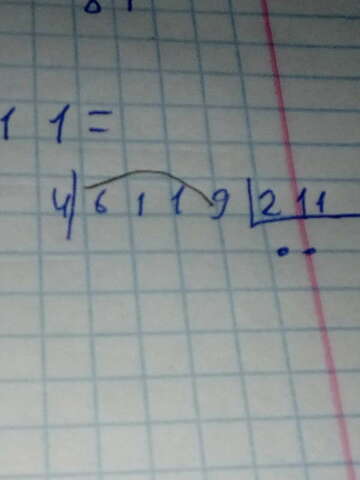 1 1 =
4) 6 1 1 9 | 2 1 1
• •